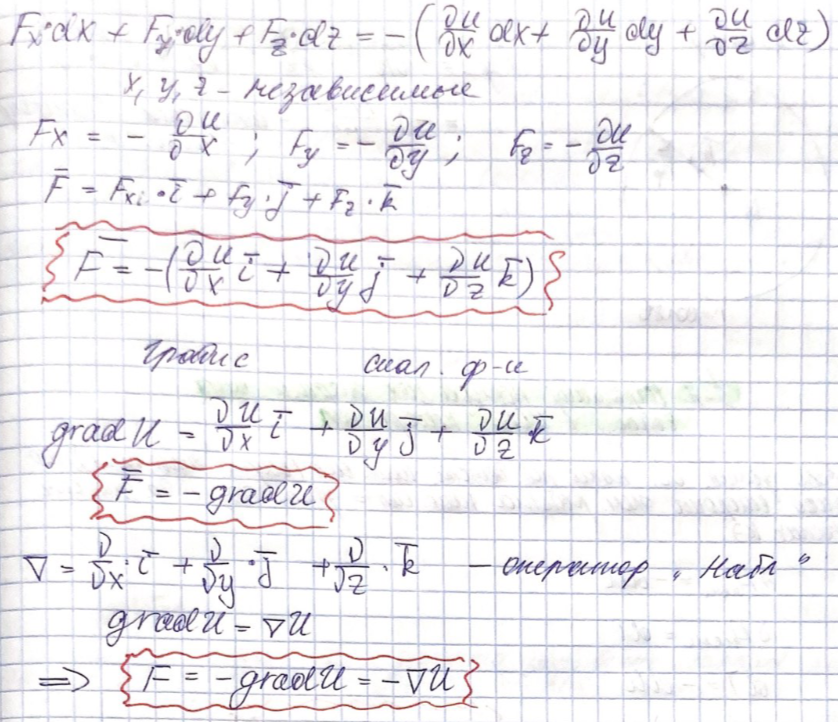 Fx·dx + Fy·dy + Fz·dz = -(∂U/∂x dx + ∂U/∂y dy + ∂U/∂z dz)
x, y, z - независимые
Fx = - ∂U/∂x ; Fy = - ∂U/∂y ; Fz = - ∂U/∂z
F̅ = Fx·i̅ + Fy·j̅ + Fz·k̅
F̅ = -(∂U/∂x i̅ + ∂U/∂y j̅ + ∂U/∂z k̅)
скал. ф-и
grad U = ∂U/∂x i̅ + ∂U/∂y j̅ + ∂U/∂z k̅
F̅ = - grad U
∇ = ∂/∂x·i̅ + ∂/∂y·j̅ + ∂/∂z·k̅ - оператор „Набл"
grad U = ∇U
⇒ F = - grad U = - ∇U